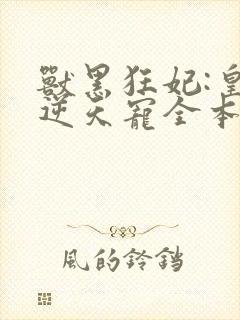 獸黑狂妃:皇
逆天寵全本
風的鈴鐺